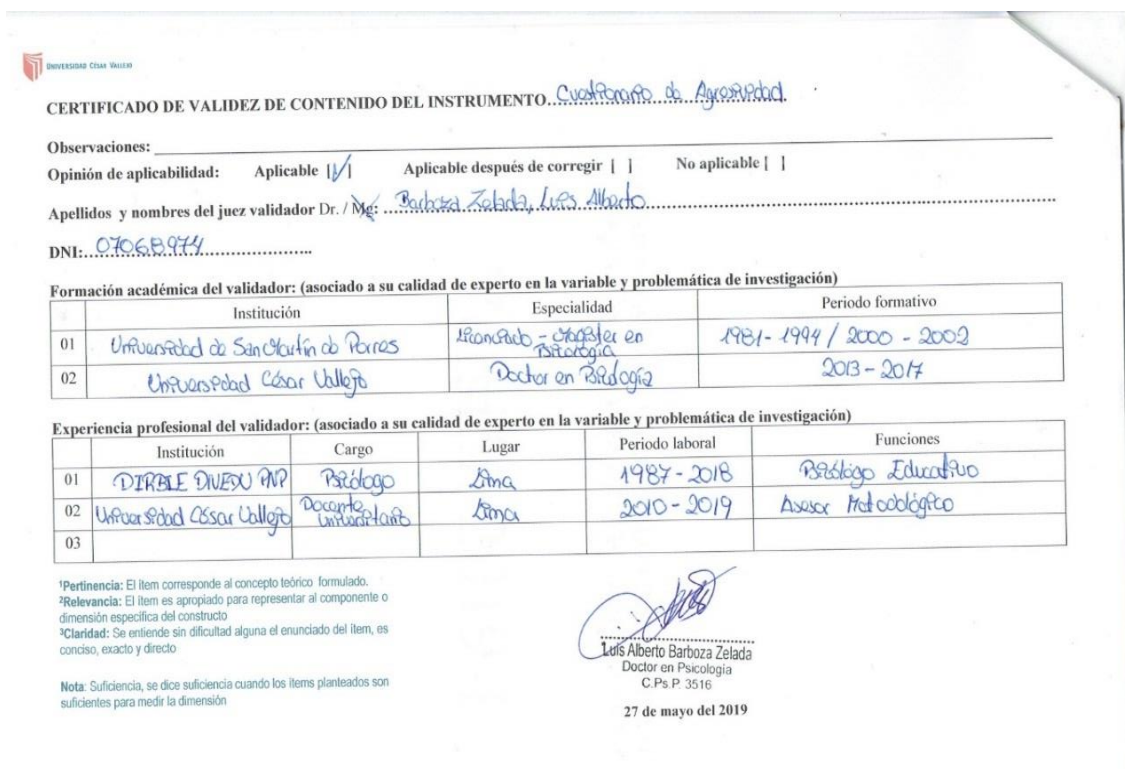 UNIVERSIDAD CÉSAR VALLEJO
CERTIFICADO DE VALIDEZ DE CONTENIDO DEL INSTRUMENTO Cuestionario de Agresividad.
Observaciones:
Opinión de aplicabilidad: Aplicable [✓] Aplicable después de corregir [ ] No aplicable [ ]
Apellidos y nombres del juez validador Dr. / Mg: Barboza Zelada, Luis Alberto
DNI: 07068974
Formación académica del validador: (asociado a su calidad de experto en la variable y problemática de investigación)
Institución Especialidad Periodo formativo
01 Universidad de San Martín de Porres Licenciado - Magister en Psicología 1981 - 1994 / 2000 - 2002
02 Universidad César Vallejo Doctor en Psicología 2013 - 2017
Experiencia profesional del validador: (asociado a su calidad de experto en la variable y problemática de investigación)
Institución Cargo Lugar Periodo laboral Funciones
01 DIVEDU PNP Psicólogo Lima 1987 - 2018 Psicólogo Educativo
02 Universidad César Vallejo Docente Universitario Lima 2010 - 2019 Asesor Metodológico
03
¹Pertinencia: El ítem corresponde al concepto teórico formulado.
²Relevancia: El ítem es apropiado para representar al componente o
dimensión específica del constructo
³Claridad: Se entiende sin dificultad alguna el enunciado del ítem, es
conciso, exacto y directo
Nota: Suficiencia, se dice suficiencia cuando los ítems planteados son
suficientes para medir la dimensión
Luis Alberto Barboza Zelada
Doctor en Psicología
C.Ps.P. 3516
27 de mayo del 2019